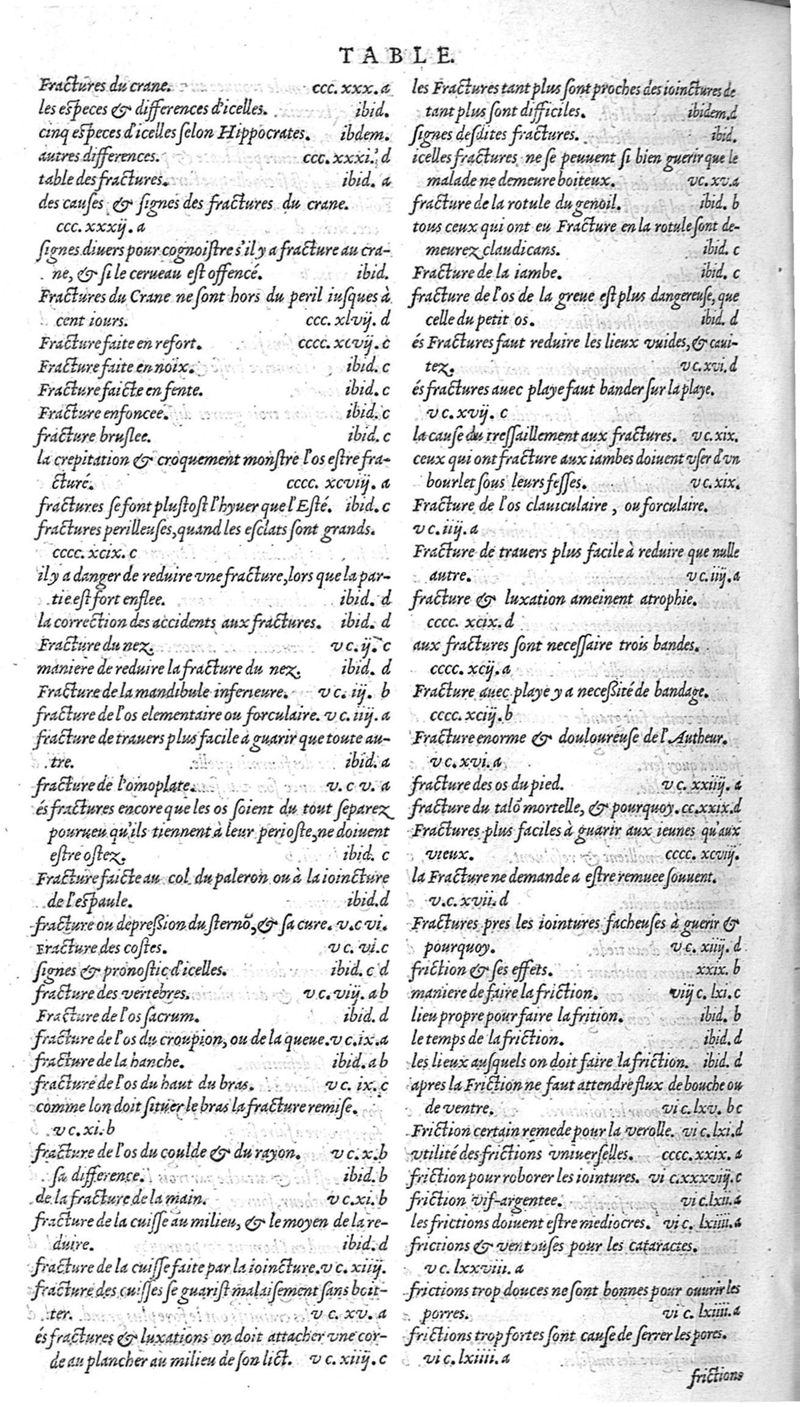 TABLE.
Fractures du crane. ccc.xxx.a
les especes & differences d'icelles. ibid.
cinq especes d'icelles selon Hippocrates. ibdem.
autres differences. ccc.xxxi. d
table des fractures. ibid. a
des causes & signes des fractures du crane.
ccc.xxxij.a
signes diuers pour cognoistre s'il y a fracture au cra-
ne, & si le cerueau est offencé. ibid.
Fractures du Crane ne sont hors du peril iusques à
cent iours. ccc.xlvij.d
Fracture faite en refort. cccc.xcvij.c
Fracture faite en noix. ibid.c
Fracture faicte en fente. ibid.c
Fracture enfoncee. ibid.c
fracture bruslee. ibid.c
la crepitation & croquement monstre l'os estre fra-
cturé. cccc.xcviij.a
fractures se font plustost l'hyuer que l'Esté. ibid.c
fractures perilleuses, quand les esclats sont grands.
cccc.xcix.c
il y a danger de reduire vne fracture, lors que la par-
tie est fort enflee. ibid. d
la correction des accidents aux fractures. ibid. d
Fracture du nez. v c.ij. c
maniere de reduire la fracture du nez. ibid. d
Fracture de la mandibule inferieure. v c. iij. b
fracture de l'os elementaire ou forculaire. v c.iiij.a
fracture de trauers plus facile à guarir que toute au-
tre. ibid.a
fracture de l'omoplate. v.c v. a
és fractures encore que les os soient du tout separez
pourueu qu'ils tiennent à leur perioste, ne doiuent
estre ostez. ibid.c
Fracture faicte au col du paleron ou à la ioincture
de l'espaule. ibid.d
fracture ou depression du sternõ, & sa cure. v.c vi.
Fracture des costes. v c. vi.c
signes & pronostic d'icelles. ibid.c d
fracture des vertebres. v c.viij.ab
Fracture de l'os sacrum. ibid.d
fracture de l'os du croupion, ou de la queue. v c.ix.a
fracture de la hanche. ibid.ab
fracture de l'os du haut du bras. v c. ix.c
comme lon doit situer le bras la fracture remise.
v c.xi.b
fracture de l'os du coulde & du rayon. v c.x.b
sa difference. ibid.b
de la fracture de la main. v c.xi.b
fracture de la cuisse au milieu, & le moyen de la re-
duire. ibid.d
fracture de la cuisse faite par la ioincture. v c. xiiij.
fracture des cuisses se guarist malaisement sans boit-
ter. v c. xv. a
és fractures & luxations on doit attacher vne cor-
de au plancher au milieu de son lict. v c.xiiij.c
les Fractures tant plus sont proches des ioinctures de
tant plus sont difficiles. ibidem.d
signes desdites fractures. ibid.
icelles fractures ne se peuuent si bien guerir que le
malade ne demeure boiteux. v c.xv.a
fracture de la rotule du genoil. ibid. b
tous ceux qui ont eu Fracture en la rotule sont de-
meurez claudicans. ibid. c
Fracture de la iambe. ibid. c
fracture de l'os de la greue est plus dangereuse, que
celle du petit os. ibid. d
és Fractures faut reduire les lieux vuides, & caui-
tez. v c.xvi.d
és fractures auec playe faut bander sur la playe.
v c.xvij. c
la cause du tressaillement aux fractures. v c.xix.
ceux qui ont fracture aux iambes doiuent vser d'vn
bourlet sous leurs fesses. v c.xix.
Fracture de l'os clauiculaire, ou forculaire.
v c.iiij.a
Fracture de trauers plus facile à reduire que nulle
autre. v c.iiij.a
fracture & luxation ameinent atrophie.
cccc. xcix.d
aux fractures sont necessaire trois bandes.
cccc. xcij.a
Fracture auec playe y a necessité de bandage.
cccc.xciij.b
Fracture enorme & douloureuse de l'Autheur.
v c.xvi.a
fracture des os du pied. v c. xxiiij. a
fracture du talõ mortelle, & pourquoy. cc.xxix.d
Fractures plus faciles à guarir aux ieunes qu'aux
vieux. cccc. xcviij.
la Fracture ne demande a estre remuee souuent.
v.c.xvij.d
Fractures pres les iointures facheuses à guerir &
pourquoy. v c. xiiij. d
friction & ses effets. xxix. b
maniere de faire la friction. viij c. lxi.c
lieu propre pour faire la frition. ibid. b
le temps de la friction. ibid.d
les lieux ausquels on doit faire la friction. ibid. d
apres la Friction ne faut attendre flux de bouche ou
de ventre. vi c.lxv. b c
Friction certain remede pour la verolle. vi c.lxi.d
vtilité des frictions vniuerselles. cccc.xxix. a
friction pour roborer les iointures. vi c.xxxviij.c
friction vif-argentee. vi c.lxii.a
les frictions doiuent estre mediocres. vi c. lxiiii.a
frictions & ventouses pour les cataractes.
v c. lxxviii. a
frictions trop douces ne sont bonnes pour ouurir les
porres. vi c. lxiiii.a
frictions trop fortes sont cause de serrer les pores.
vi c. lxiiii.a
frictions